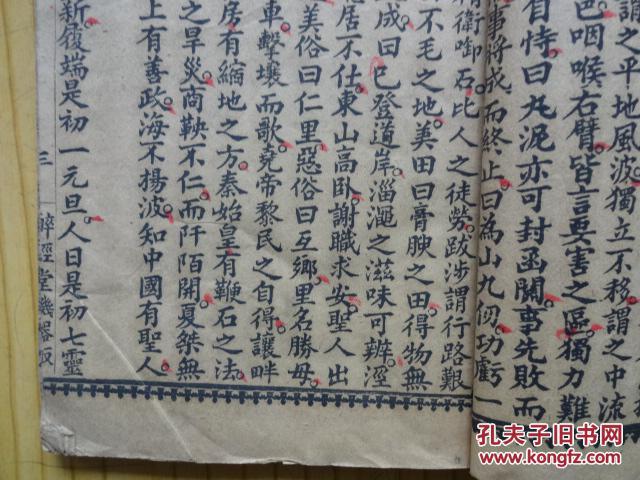 謂之平地風波。獨立不移謂之中流
巴咽喉右臂。皆言要害之區。獨力難
自恃。曰丸泥亦可封函關。事先敗而
事將成而終止。曰為山九仞功虧一
衛啣石。比人之徒勞。跋涉謂行路艱
不毛之地。美田曰膏腴之田。得物無
成曰已登道岸。淄澠之滋味可辨。涇
居不仕。東山高卧。謝職求安。聖人出
美俗曰仁里。惡俗曰互鄉。里名勝母。
車。擊壤而歌。堯帝黎民之自得。讓畔
房有縮地之方。秦始皇有鞭石之法。
之旱災。商鞅不仁。而阡陌開。夏桀無
上有善政。海不揚波。知中國有聖人
三 經堂
新。履端是初一元旦。人日是初七靈
孔夫子旧书网
www.kongfz.com